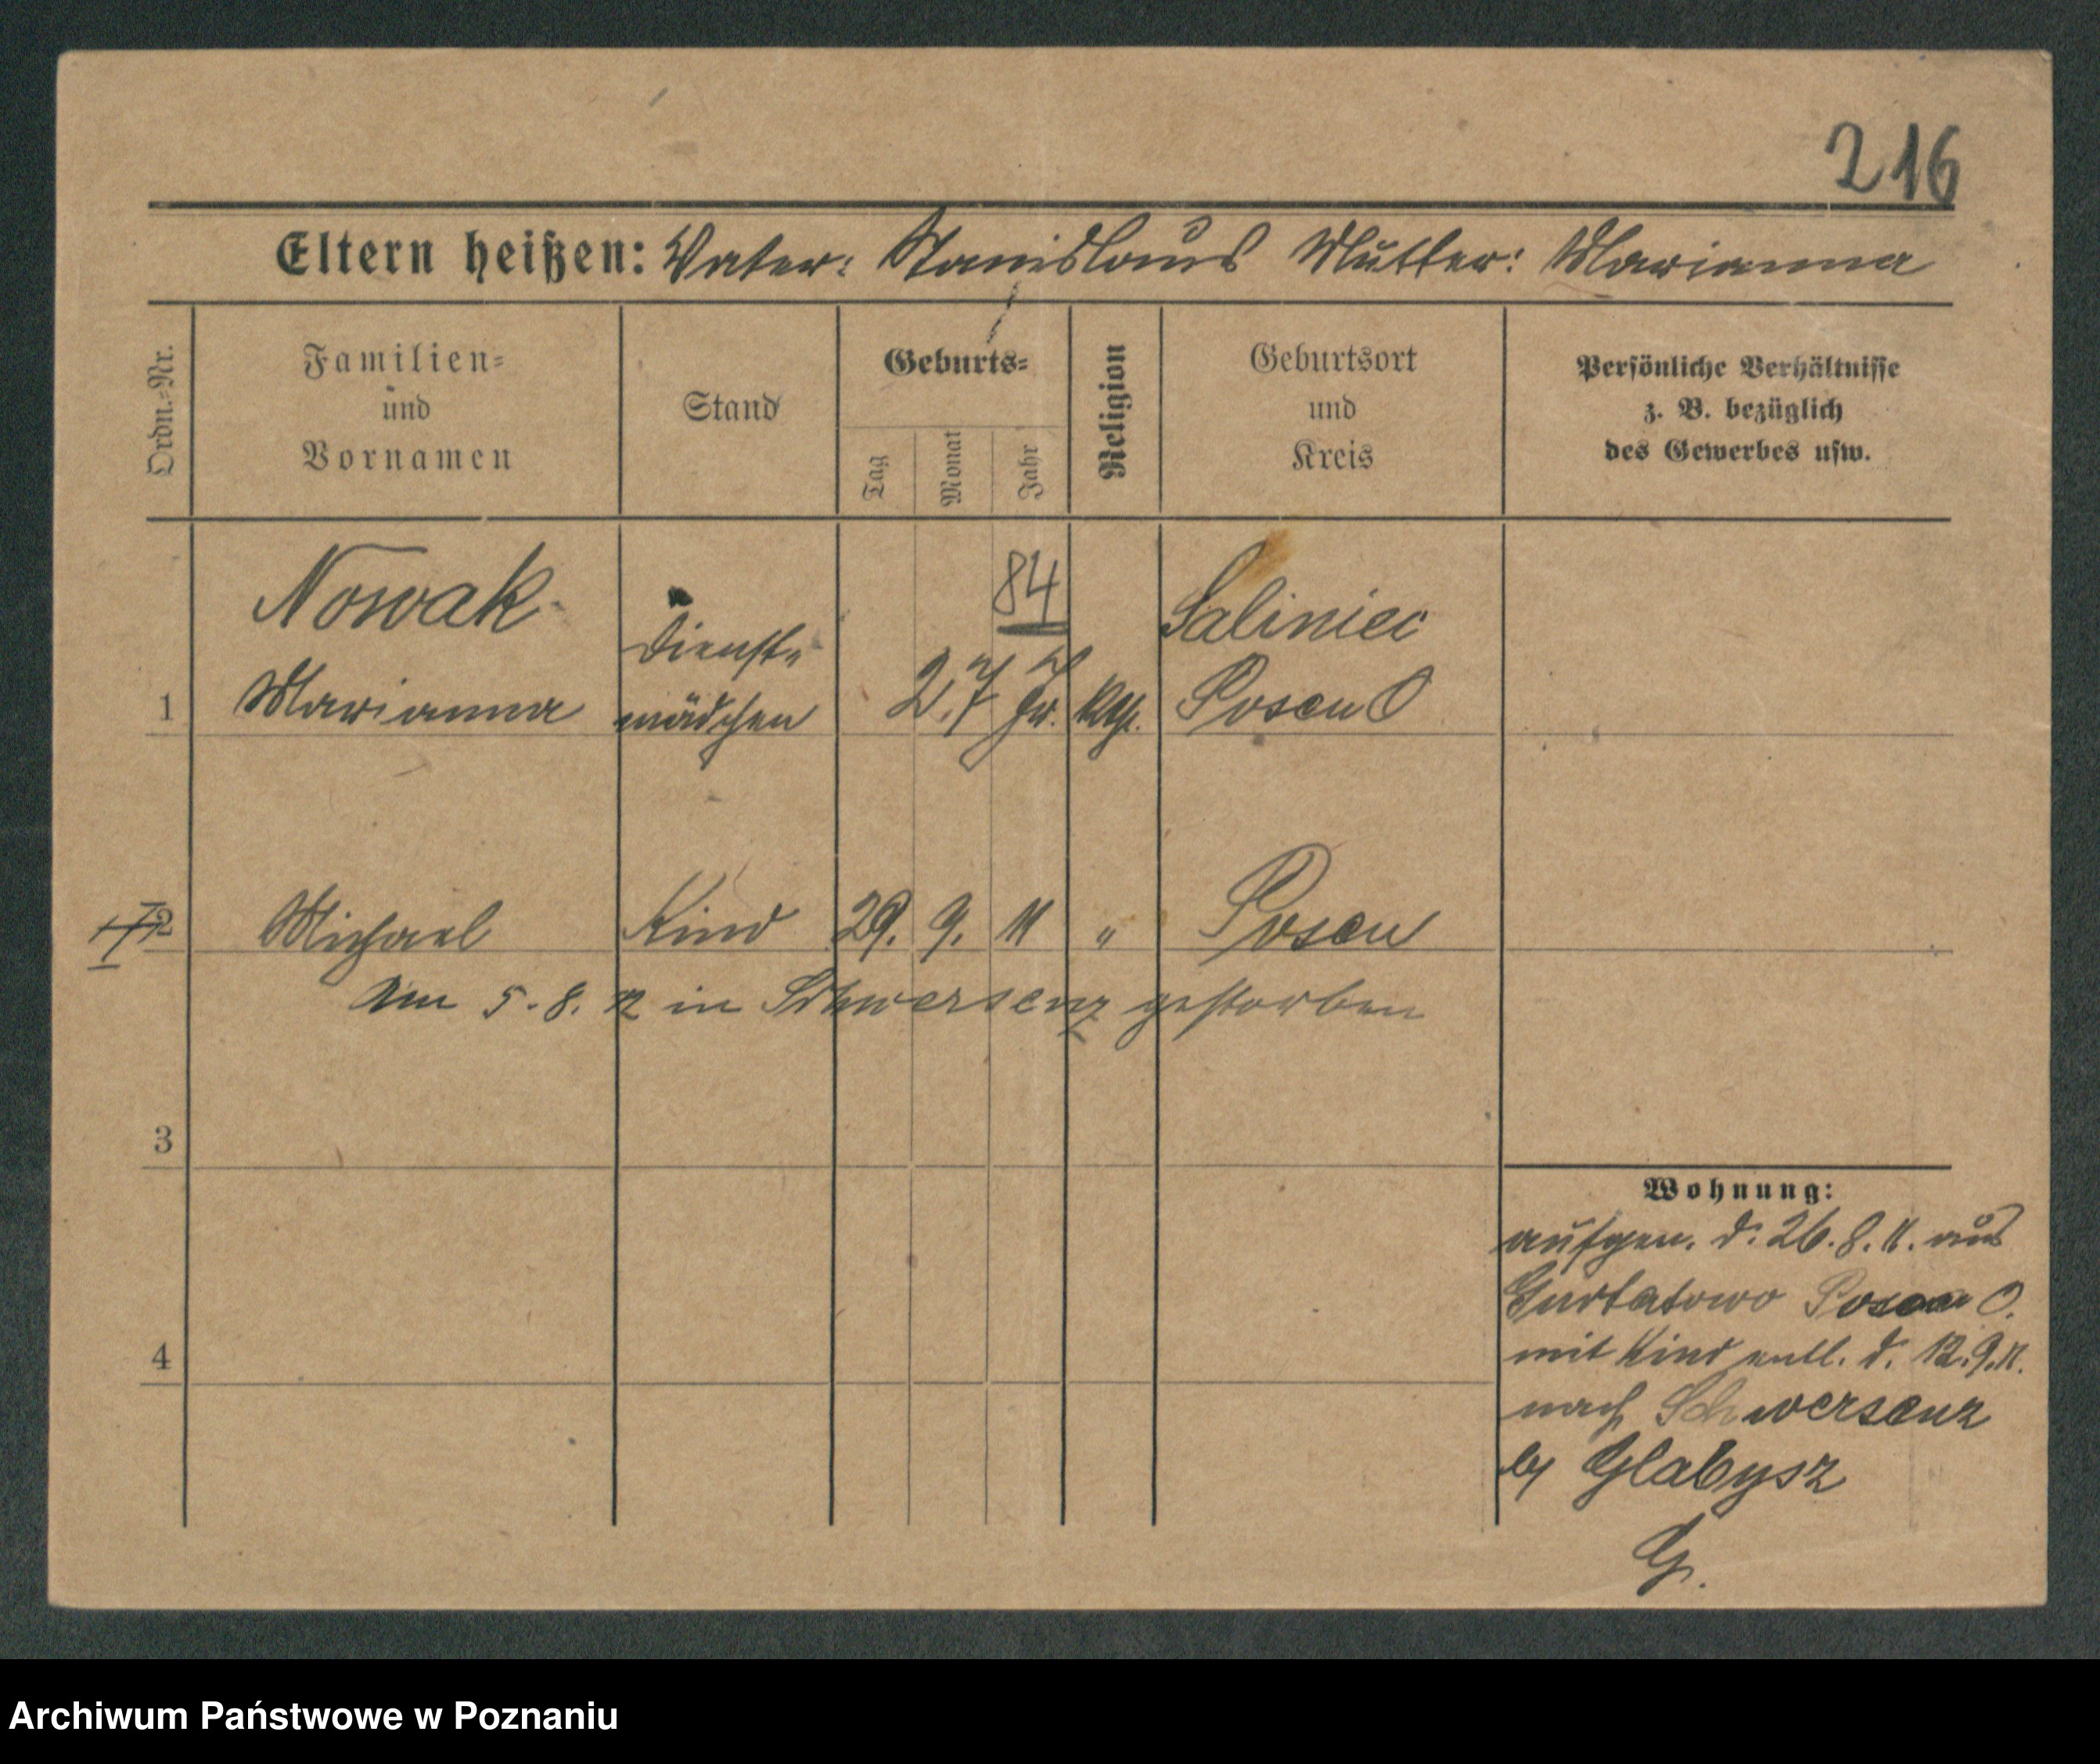 216
Eltern heißen: Vater: Stanislaus Mutter: Marianna
Ordn.=Nr.
Familien=
und
Vornamen
Stand
Geburts=
Tag
Monat
Jahr
Religion
Geburtsort
und
Kreis
Persönliche Verhältnisse
z. B. bezüglich
des Gewerbes usw.
1
Nowak
Marianna
Dienst=
mädchen
84
27 J.
kth.
Saliniec
Posen O
2
Michael
Kind
29.
9.
11
"
Posen
Am 5.8.12 in Schwersenz gestorben
3
4
Wohnung:
aufgen. d. 26.8.11. aus
Gurtatowo Posen O.
mit Kind entl. d. 12.9.11.
nach Schwersenz
Glabysz
G.
Archiwum Państwowe w Poznaniu